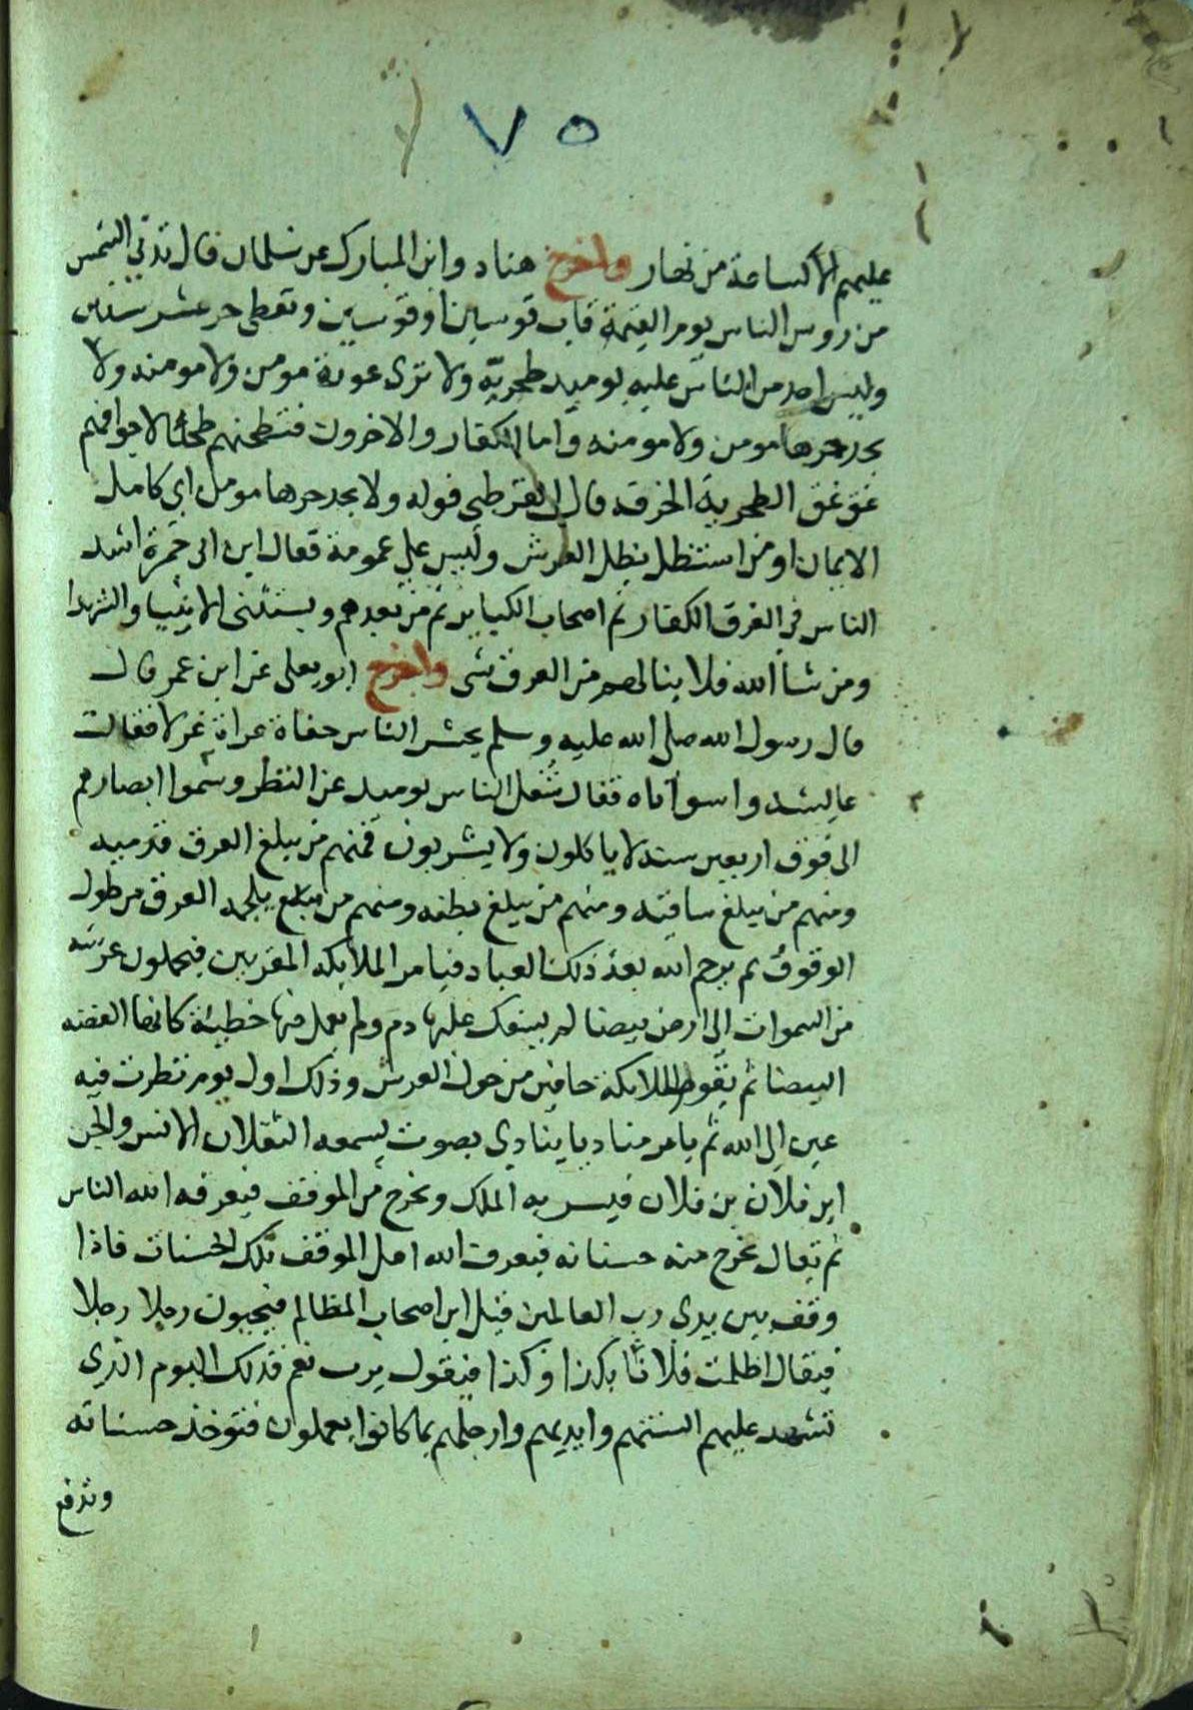 ٧٥
عليهم الا كساعة من نهار واخرج هناد وابن المبارك عن سلمان قال تدني الشمس
من روس الناس يوم القيمة قاب قوسين او قوسين وتعطى حر عشر سنين
وليس احد من الناس عليه يوميد طحربة ولا ترى عورة مومن ولا مومنه ولا
يجد حرها مومن ولا مومنه واما الكفار والاخرون فتطحنهم طحنا لاجوافهم
غق غق الطحربة الخرقه قال القرطبي قوله ولا يجد حرها مومن اي كامل
الايمان او من استظل بظل العرش وليس على عمومة فقال ابن ابي جمرة اشد
الناس في العرق الكفار ثم اصحاب الكباير ثم من بعدهم ويستثنى الانبيا والشهدا
ومن شا الله فلا ينالهم من العرق شى واخرج ابو يعلى عن ابن عمر قال
قال رسول الله صلى الله عليه وسلم يحشر الناس حفاة عراة غرلا فقالت
عايشه واسواتاه فقال شغل الناس يوميد عن النظر وسموا ابصارهم
الى فوق اربعين سنه لا ياكلون ولا يشربون فمنهم من يبلغ العرق قدميه
ومنهم من يبلغ ساقيه ومنهم من يبلغ بطنه ومنهم من يلجمه العرق من طول
الوقوف ثم يرحم الله بعد ذلك العباد فيامر الملايكه المقربين فيحملون عرشه
من السموات الى ارض بيضا لم يسفك عليها دم ولم يعمل فيها خطيئة كانها الفضه
البيضا ثم تقوم الملايكة حافين من حول العرش وذلك اول يوم نظرت فيه
عين الى الله ثم يامر مناديا ينادي بصوت يسمعه الثقلان الانس والجن
اين فلان بن فلان فيسر به الملك ويخرج من الموقف فيعرفه الله الناس
ثم يقال تخرج معه حسناته فيعرف الله اهل الموقف تلك الحسنات فاذا
وقف بين يدى رب العالمين قيل اين اصحاب المظالم فيجيبون رجلا رجلا
فيقال اظلمت فلانا بكذا وكذا فيقول يرب نعم فذلك اليوم الذي
تشهد عليهم السنتهم وايديهم وارجلهم بما كانوا يعملون فتوخذ حسناته
وتدفع